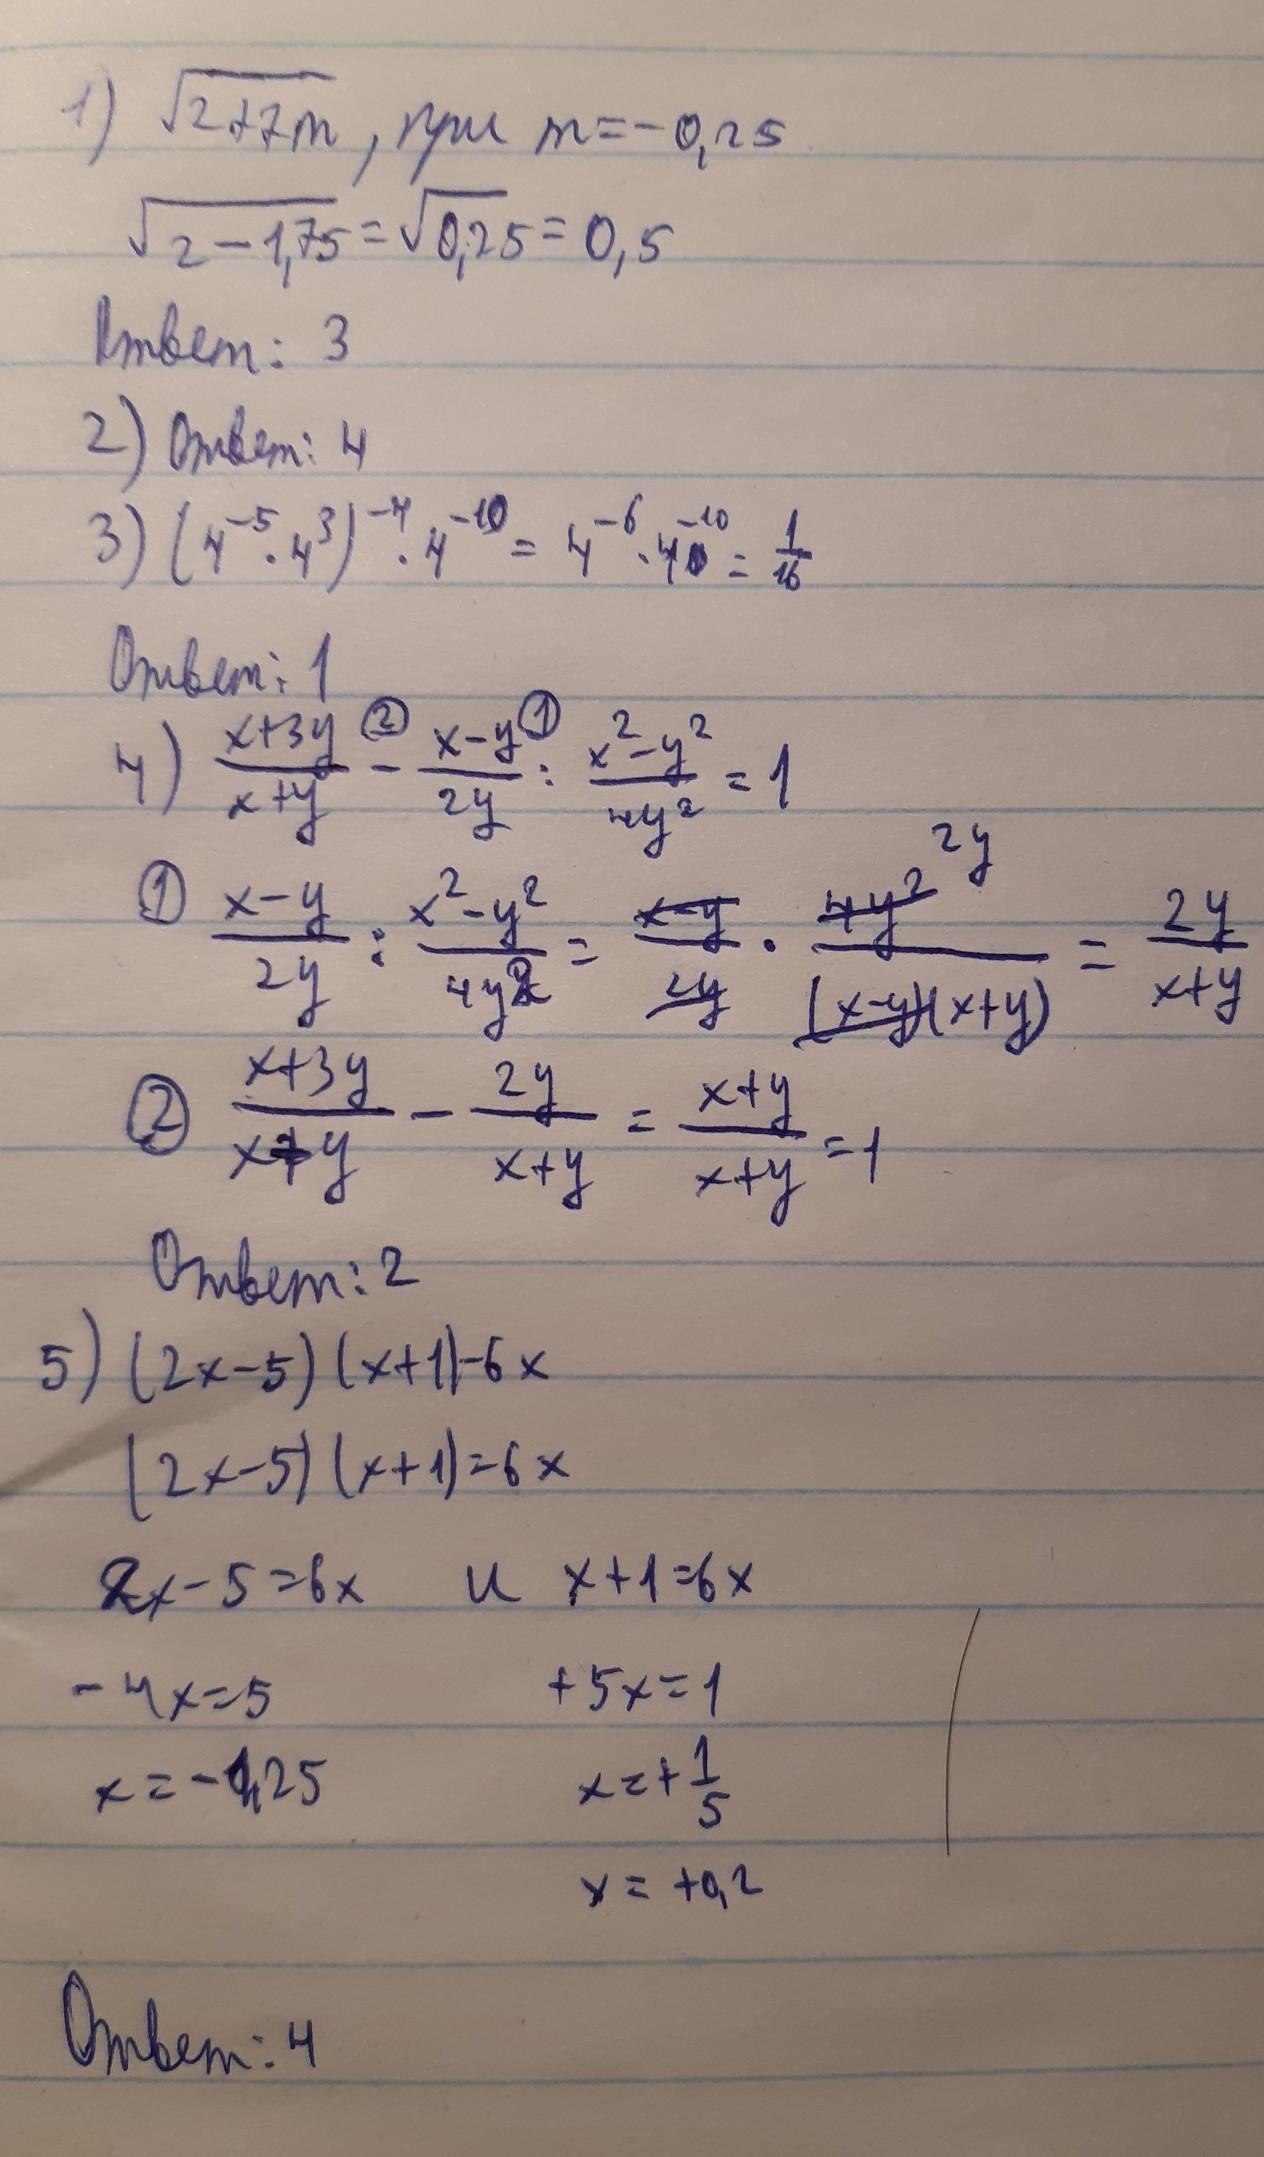 1) √2+7m, при m=-0,25
√2-1,75=√0,25=0,5
Ответ: 3
2) Ответ: 4
3) (4⁻⁵·4³)⁻⁴·4⁻¹⁰=4⁻⁶·4⁻¹⁰=1/16
Ответ: 1
4) (x+3y)/(x+y) ② - (x-y)/2y ① : (x²-y²)/4y² =1
① (x-y)/2y : (x²-y²)/4y² = (x-y)/2y · 4y² 2y/(x-y)(x+y) = 2y/(x+y)
② (x+3y)/(x+y) - 2y/(x+y) = (x+y)/(x+y) =1
Ответ: 2
5) (2x-5)(x+1)-6x
(2x-5)(x+1)=6x
2x-5=6x и x+1=6x
-4x=5 +5x=1
x=-1,25 x=+1/5
x=+0,2
Ответ: 4